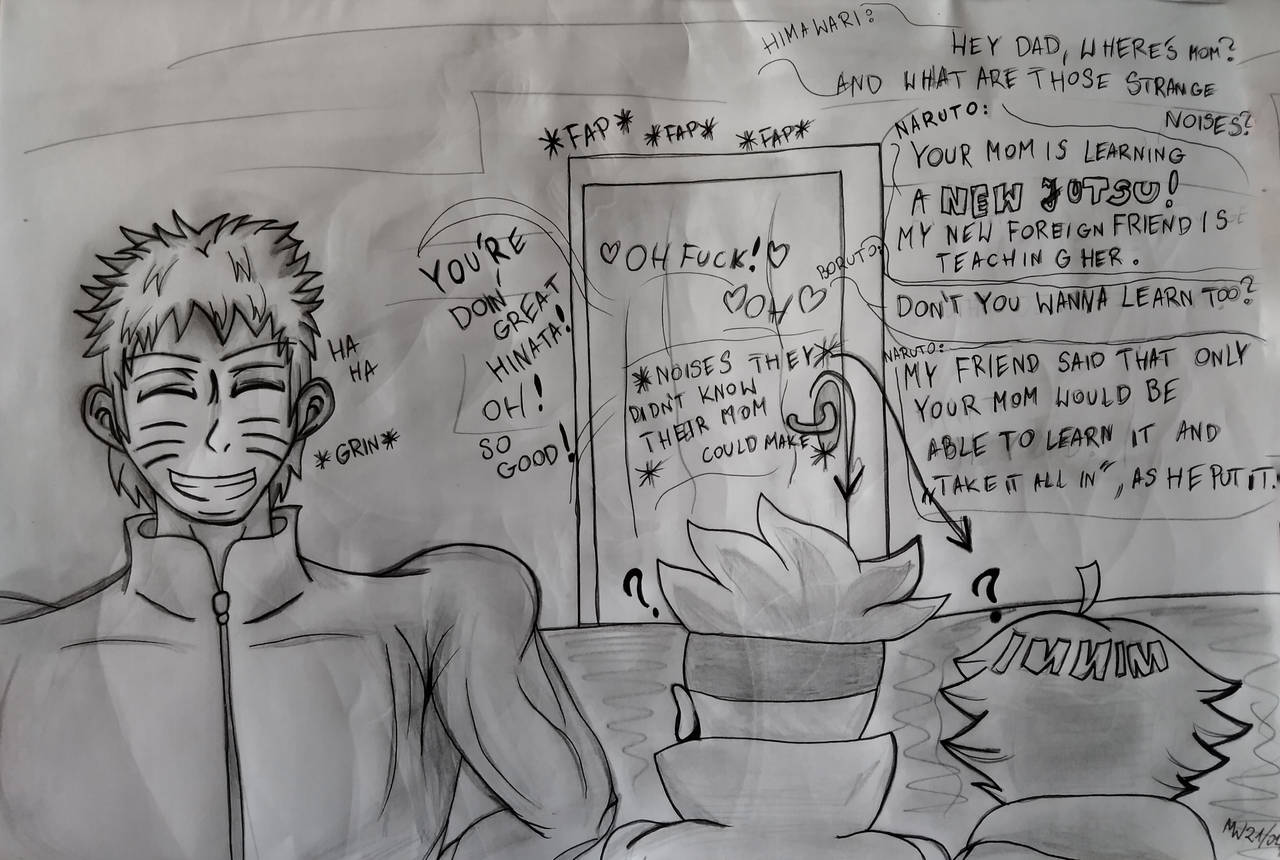 HIMAWARI:
HEY DAD, WHERE'S MOM?
AND WHAT ARE THOSE STRANGE
NOISES?
*FAP* *FAP* *FAP*
NARUTO:
YOUR MOM IS LEARNING
A NEW JUTSU!
MY NEW FOREIGN FRIEND IS
TEACHING HER.
BORUTO:
DON'T YOU WANNA LEARN TOO?
NARUTO:
MY FRIEND SAID THAT ONLY
YOUR MOM WOULD BE
ABLE TO LEARN IT AND
„TAKE IT ALL IN", AS HE PUT IT.
YOU'RE
DOIN'
GREAT
HINATA!
OH!
SO
GOOD!
♡OH FUCK!♡
♡OH♡
*NOISES THEY*
DIDN'T KNOW
THEIR MOM
COULD MAKE
* *
HA
HA
*GRIN*
?
?